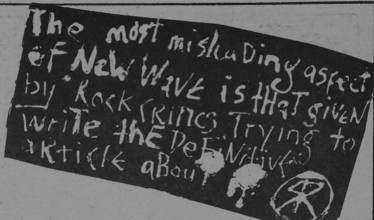 The most misleading aspect
of New Wave is tHaT given
by Rock Critics Trying to
write the Definitive
article abou